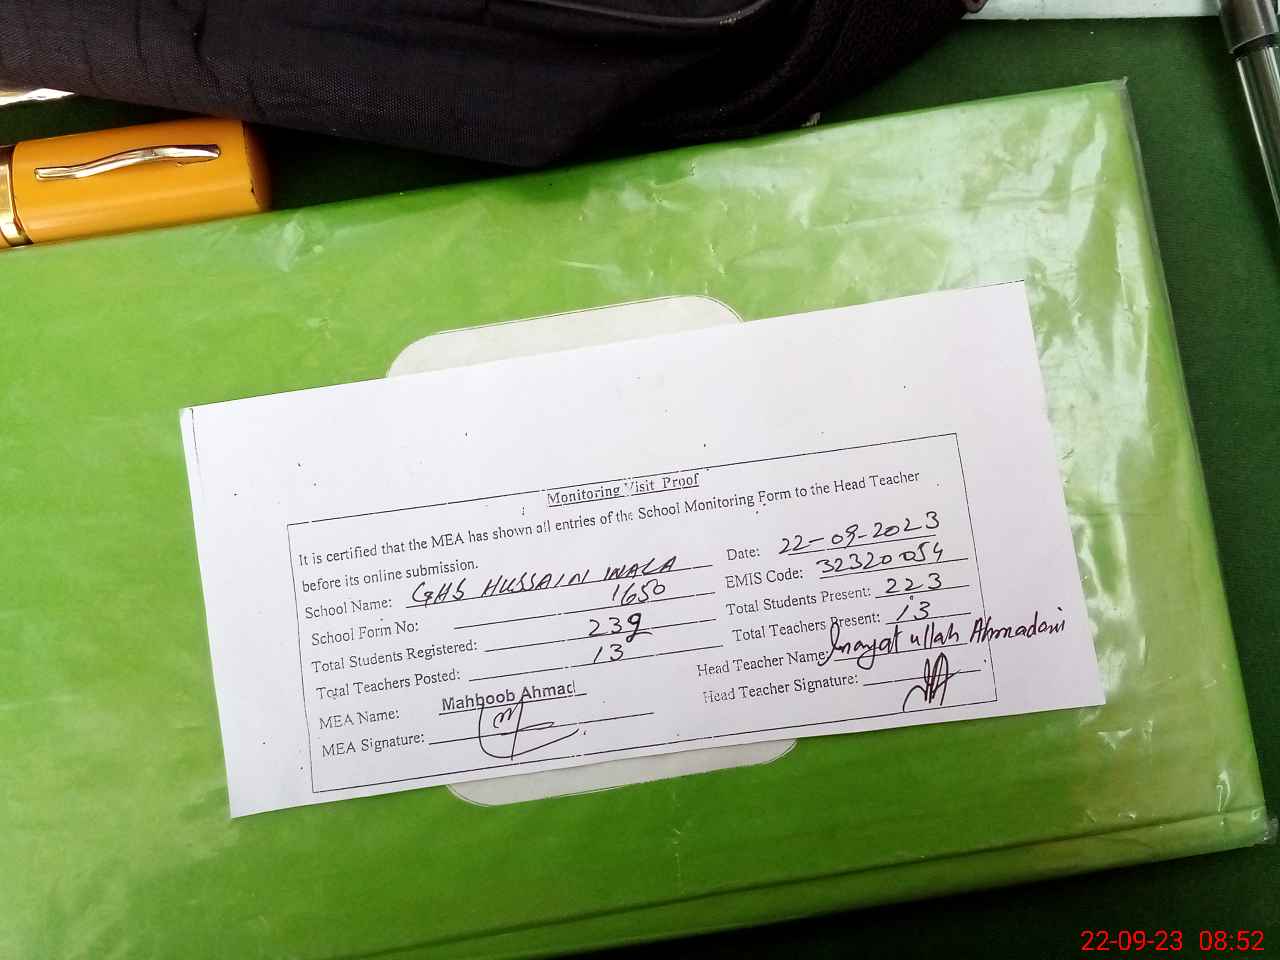 Monitoring Visit Proof
It is certified that the MEA has shown all entries of the School Monitoring Form to the Head Teacher
before its online submission.
School Name: GHS HUSSAIN WALA
Date: 22-09-2023
School Form No: 1650
EMIS Code: 32320054
Total Students Registered: 239
Total Students Present: 223
Total Teachers Posted: 13
Total Teachers Present: 13
MEA Name: Mahboob Ahmad
Head Teacher Name: Inayat ullah Ahmadani
MEA Signature:
Head Teacher Signature:
22-09-23 08:52